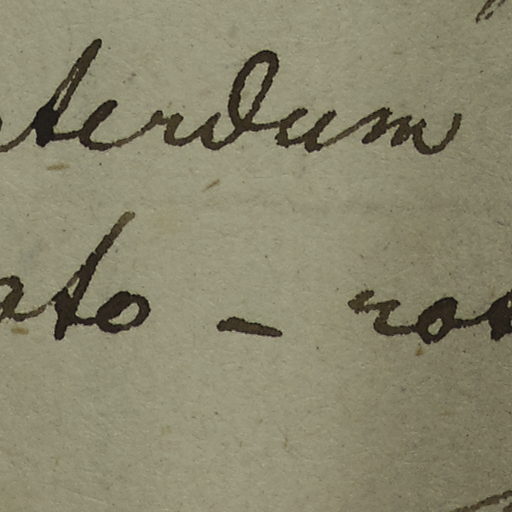 terdum
ato – rot